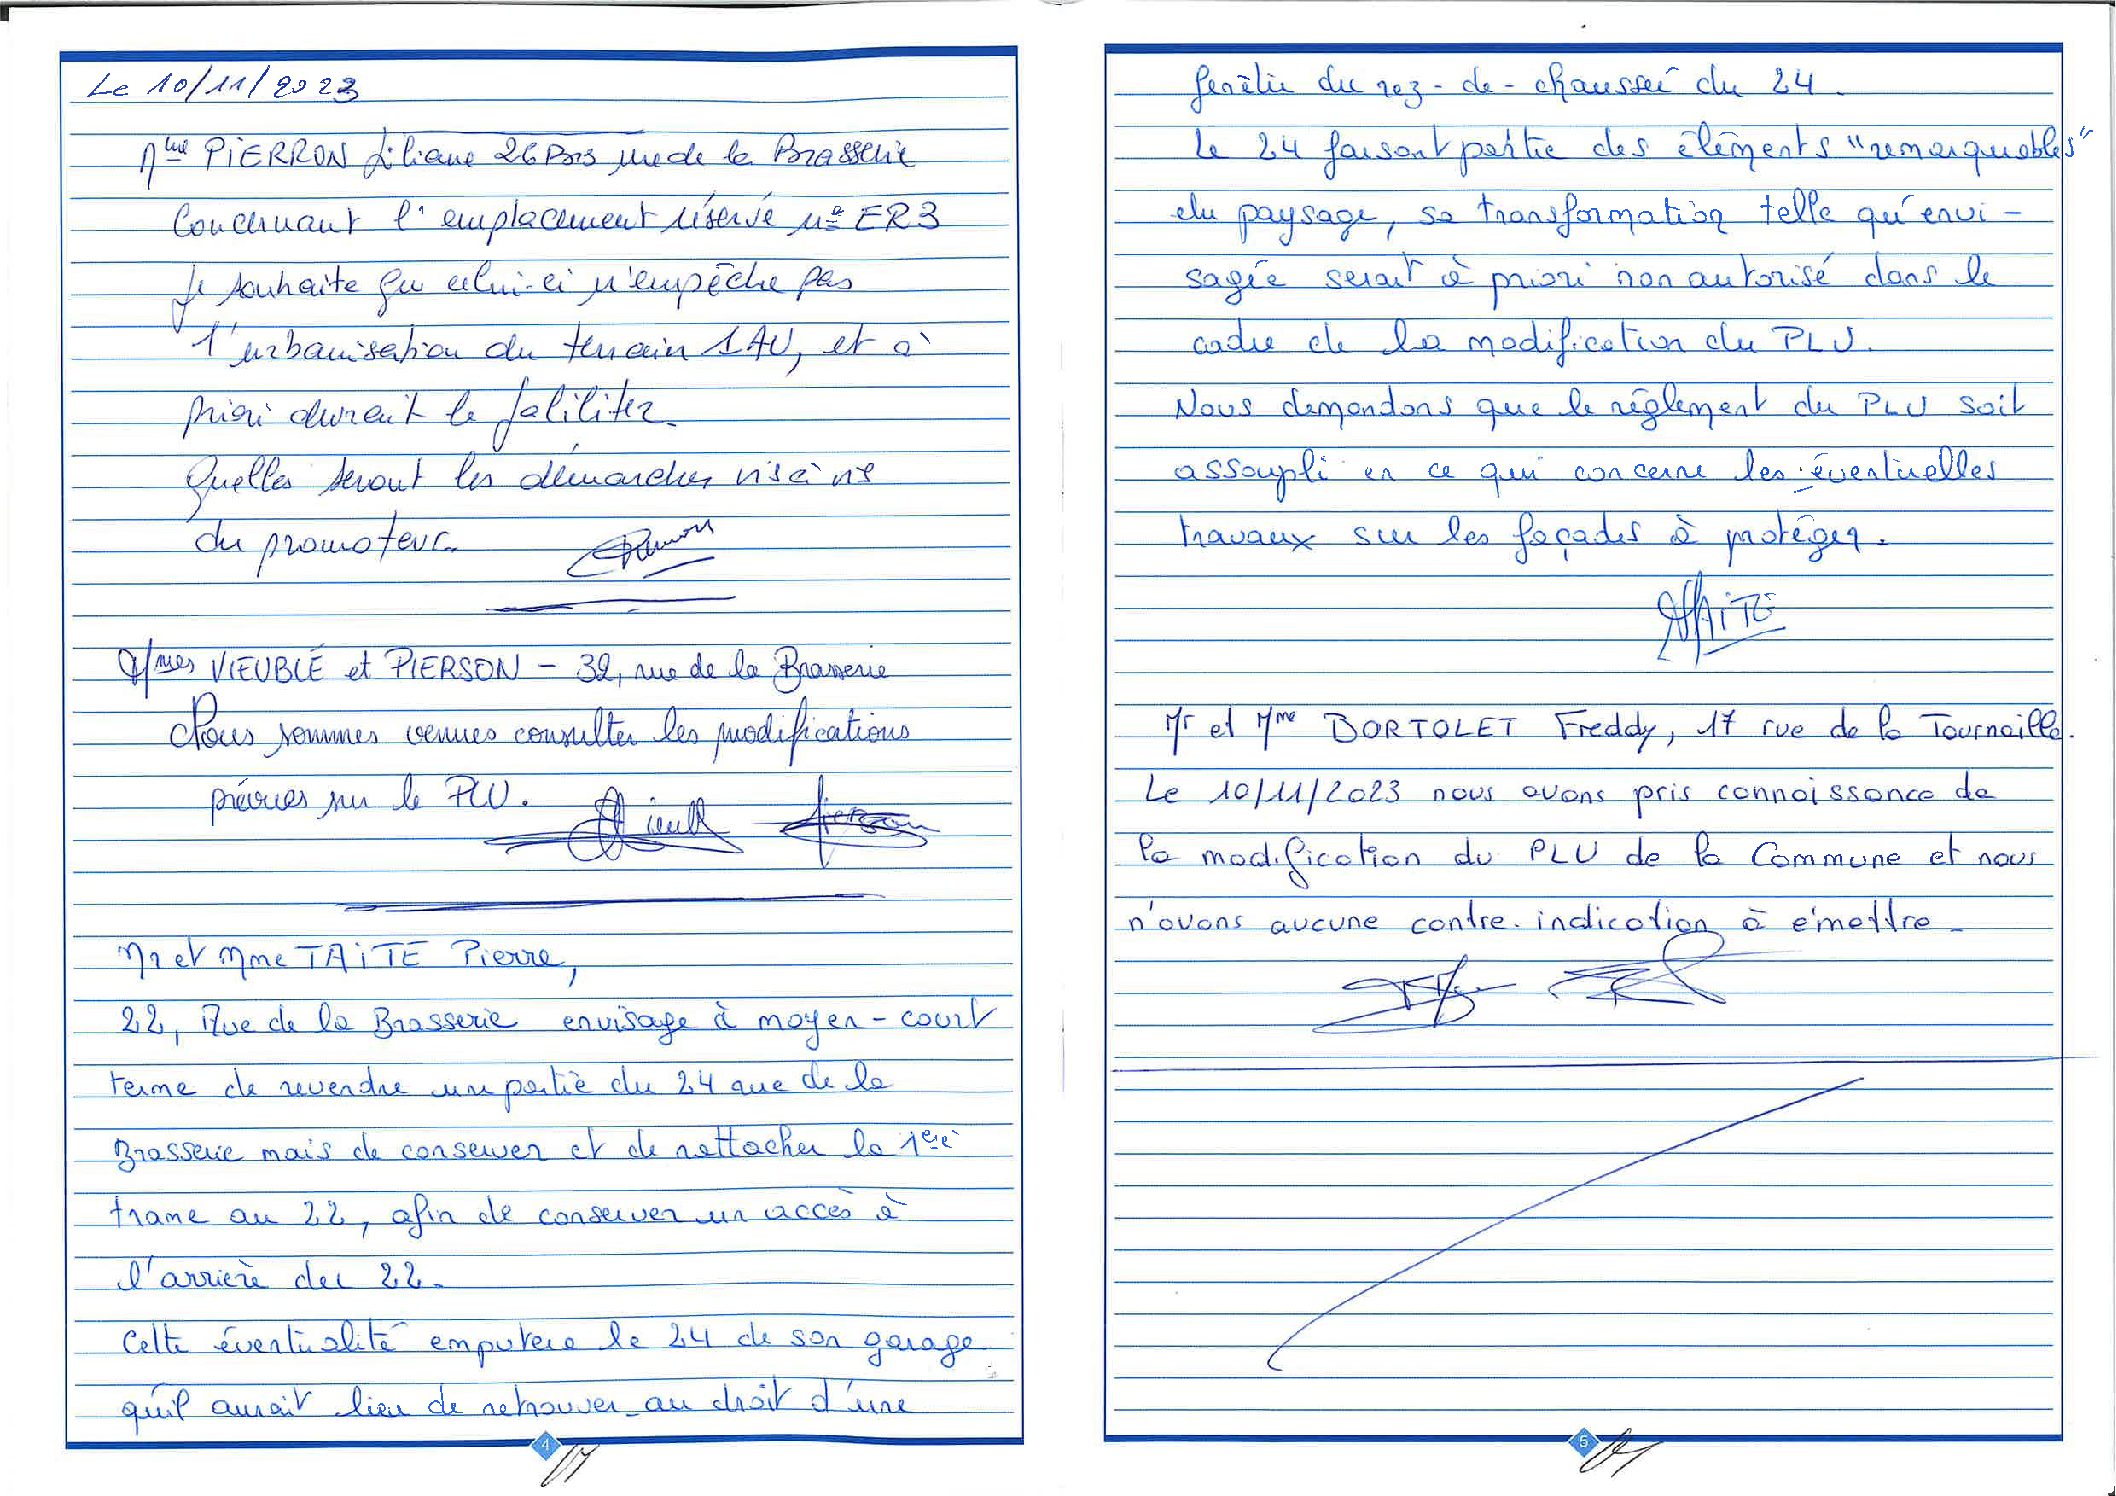 Le 10/11/2023
Mme PIERRON Liliane 26 Bis rue de la Brasserie
Concernant l'emplacement réservé n° ER3
Je souhaite que celui-ci n'empêche pas
l'urbanisation du terrain 1AU, et à
priori devrait le faliliter.
Quelles seront les démarches vis à vis
du promoteur.
Mmes VIEUBLÉ et PIERSON - 32, rue de la Brasserie
Nous sommes venues consulter les modifications
prévues sur le PLU.
Mr et Mme TAITE Pierre,
22, Rue de la Brasserie envisage à moyen-court
terme de revendre un partie du 24 rue de la
Brasserie mais de conserver et de rattacher la 1ère
trame au 22, afin de conserver un accès à
l'arrière du 22.
Cette éventualité emputera le 24 de son garage
qu'il aurait lieu de retrouver au droit d'une
4
fenêtre du rez-de-chaussée du 24.
Le 24 faisant partie des éléments "remarquables"
du paysage, sa transformation telle qu'envi-
sagée serait à priori non autorisé dans le
cadre de la modification du PLU.
Nous demandons que le règlement du PLU soit
assoupli en ce qui concerne les éventuelles
travaux sur les façades à protéger.
TAITE
Mr et Mme BORTOLET Freddy, 17 rue de la Tournaille.
Le 10/11/2023 nous avons pris connaissance de
la modification du PLU de la Commune et nous
n'avons aucune contre-indication à émettre.
5